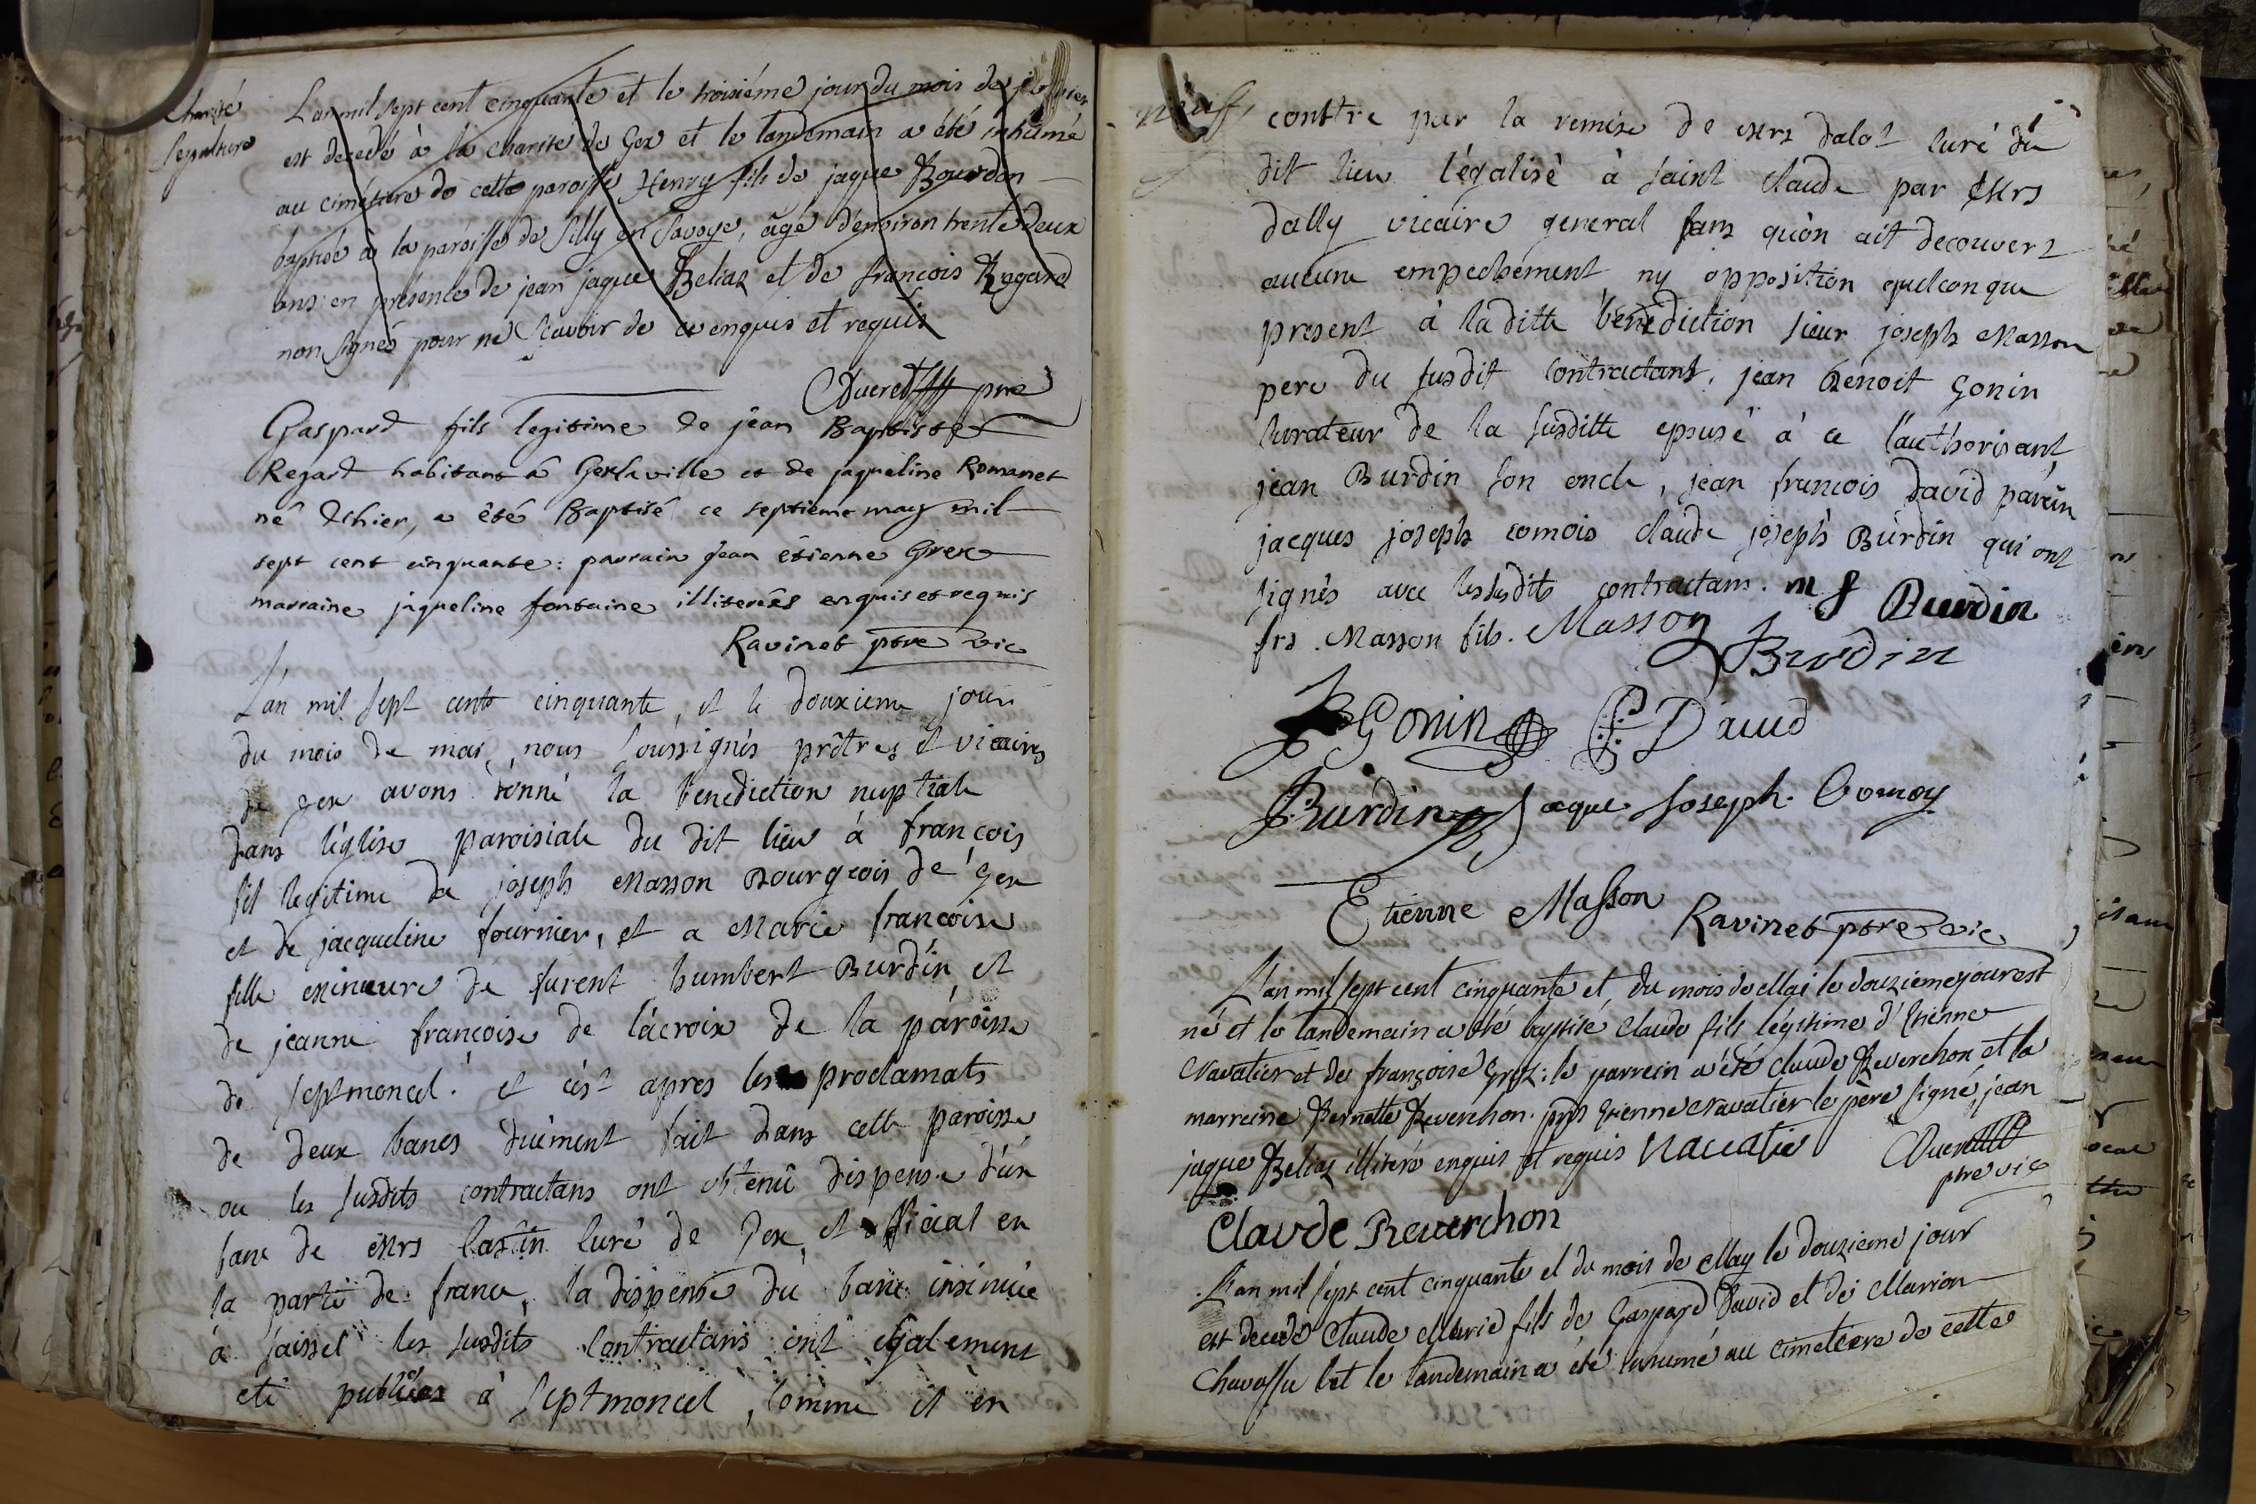 Charité
Sepulture
L'an mil sept cent cinquante et le troisiéme jour du mois de janvier
est decedé à la charité de Gex et le landemain a été inhumé
au cimétiere de cette paroisse Henry fils de jaque Bourdon
baptisé à la paroisse de Silly en Savoye, âgé d'environ trente deux
ans: en présence de jean jaque Beliaz et de francois Regard
non signés pour ne scavoir de ce enquis et requis
Ducret ptre
Gaspard fils legitime de jean Baptiste
Regard habitant à Gexlaville et de jaqueline Romanet
né d'hier, a été Baptisé ce septieme may mil
sept cent cinquante: parrain jean étienne Grex
marraine jaqueline fontaine illiterées enquis et requis
Ravinet ptre vic
L'an mil sept cents cinquante, et le douxieme jour
du mois de mai, nous soussignés prêtres et vicaires
de gex avons donné la benediction nuptiale
dans l'église paroisiale du dit lieu à francois
fil legitime de joseph Masson Bourgeois de gex
et de jacqueline fournier, et a Marie francoise
fille mineure de furent humbert Burdin et
de jeanne françoise de lacroix de la paroisse
de septmoncel. et c'est apres les proclamats
de deux bancs duement fait dans cette paroisse
ou les susdits contractans ont obtenû dispense d'un
banc de Mrs Castin curé de Gex, et official en
la parti de france, la dispense du banc insinuée
à saissel les susdits contractans ont également
eté publiés à septmoncel, comme il en
neuf
conttre par la remise de Mrs dalot curé du
dit lieu légalisè à saint claude par Mrs
dally vicaire general sans qu'on ait decouvert
aucune empechement ny opposition quelconque
present à laditte bénédiction sieur joseph Masson
pere du susdit contractant, jean Benoit Gonin
curateur de la susditte epousé à ce l'authorisant,
jean Burdin son oncle, jean francois David parein
jacques joseph comois claude joseph Burdin qui ont
signés avec lesusdits contractans. m f Burdin
frs. Masson fils. Masson
Burdin
JB Gonin JF David
J Burdin Jacque Joseph Comoy
Etienne Masson
Ravinet ptre vic
L'an mil sept cent cinquante et du mois de Mai le douzieme jour est
né et le landemain a été baptisé Claude fils légitime d'Etienne
Navatier et de françoise Groz: le parrein a été Claude Reverchon et la
marreine Pernette Reverchon. pnts Etienne Navatier le père signé, jean
jaque Beliaz illiteré enquis et requis Navatie
Ducret
ptre vic
Claude Reverchon
L'an mil sept cent cinquante et du mois de May le douzieme jour
est decedé Claude Marie fils de Gaspard David et de Marion
Chavassu et le landemain a été inhumé au cimetiere de cette